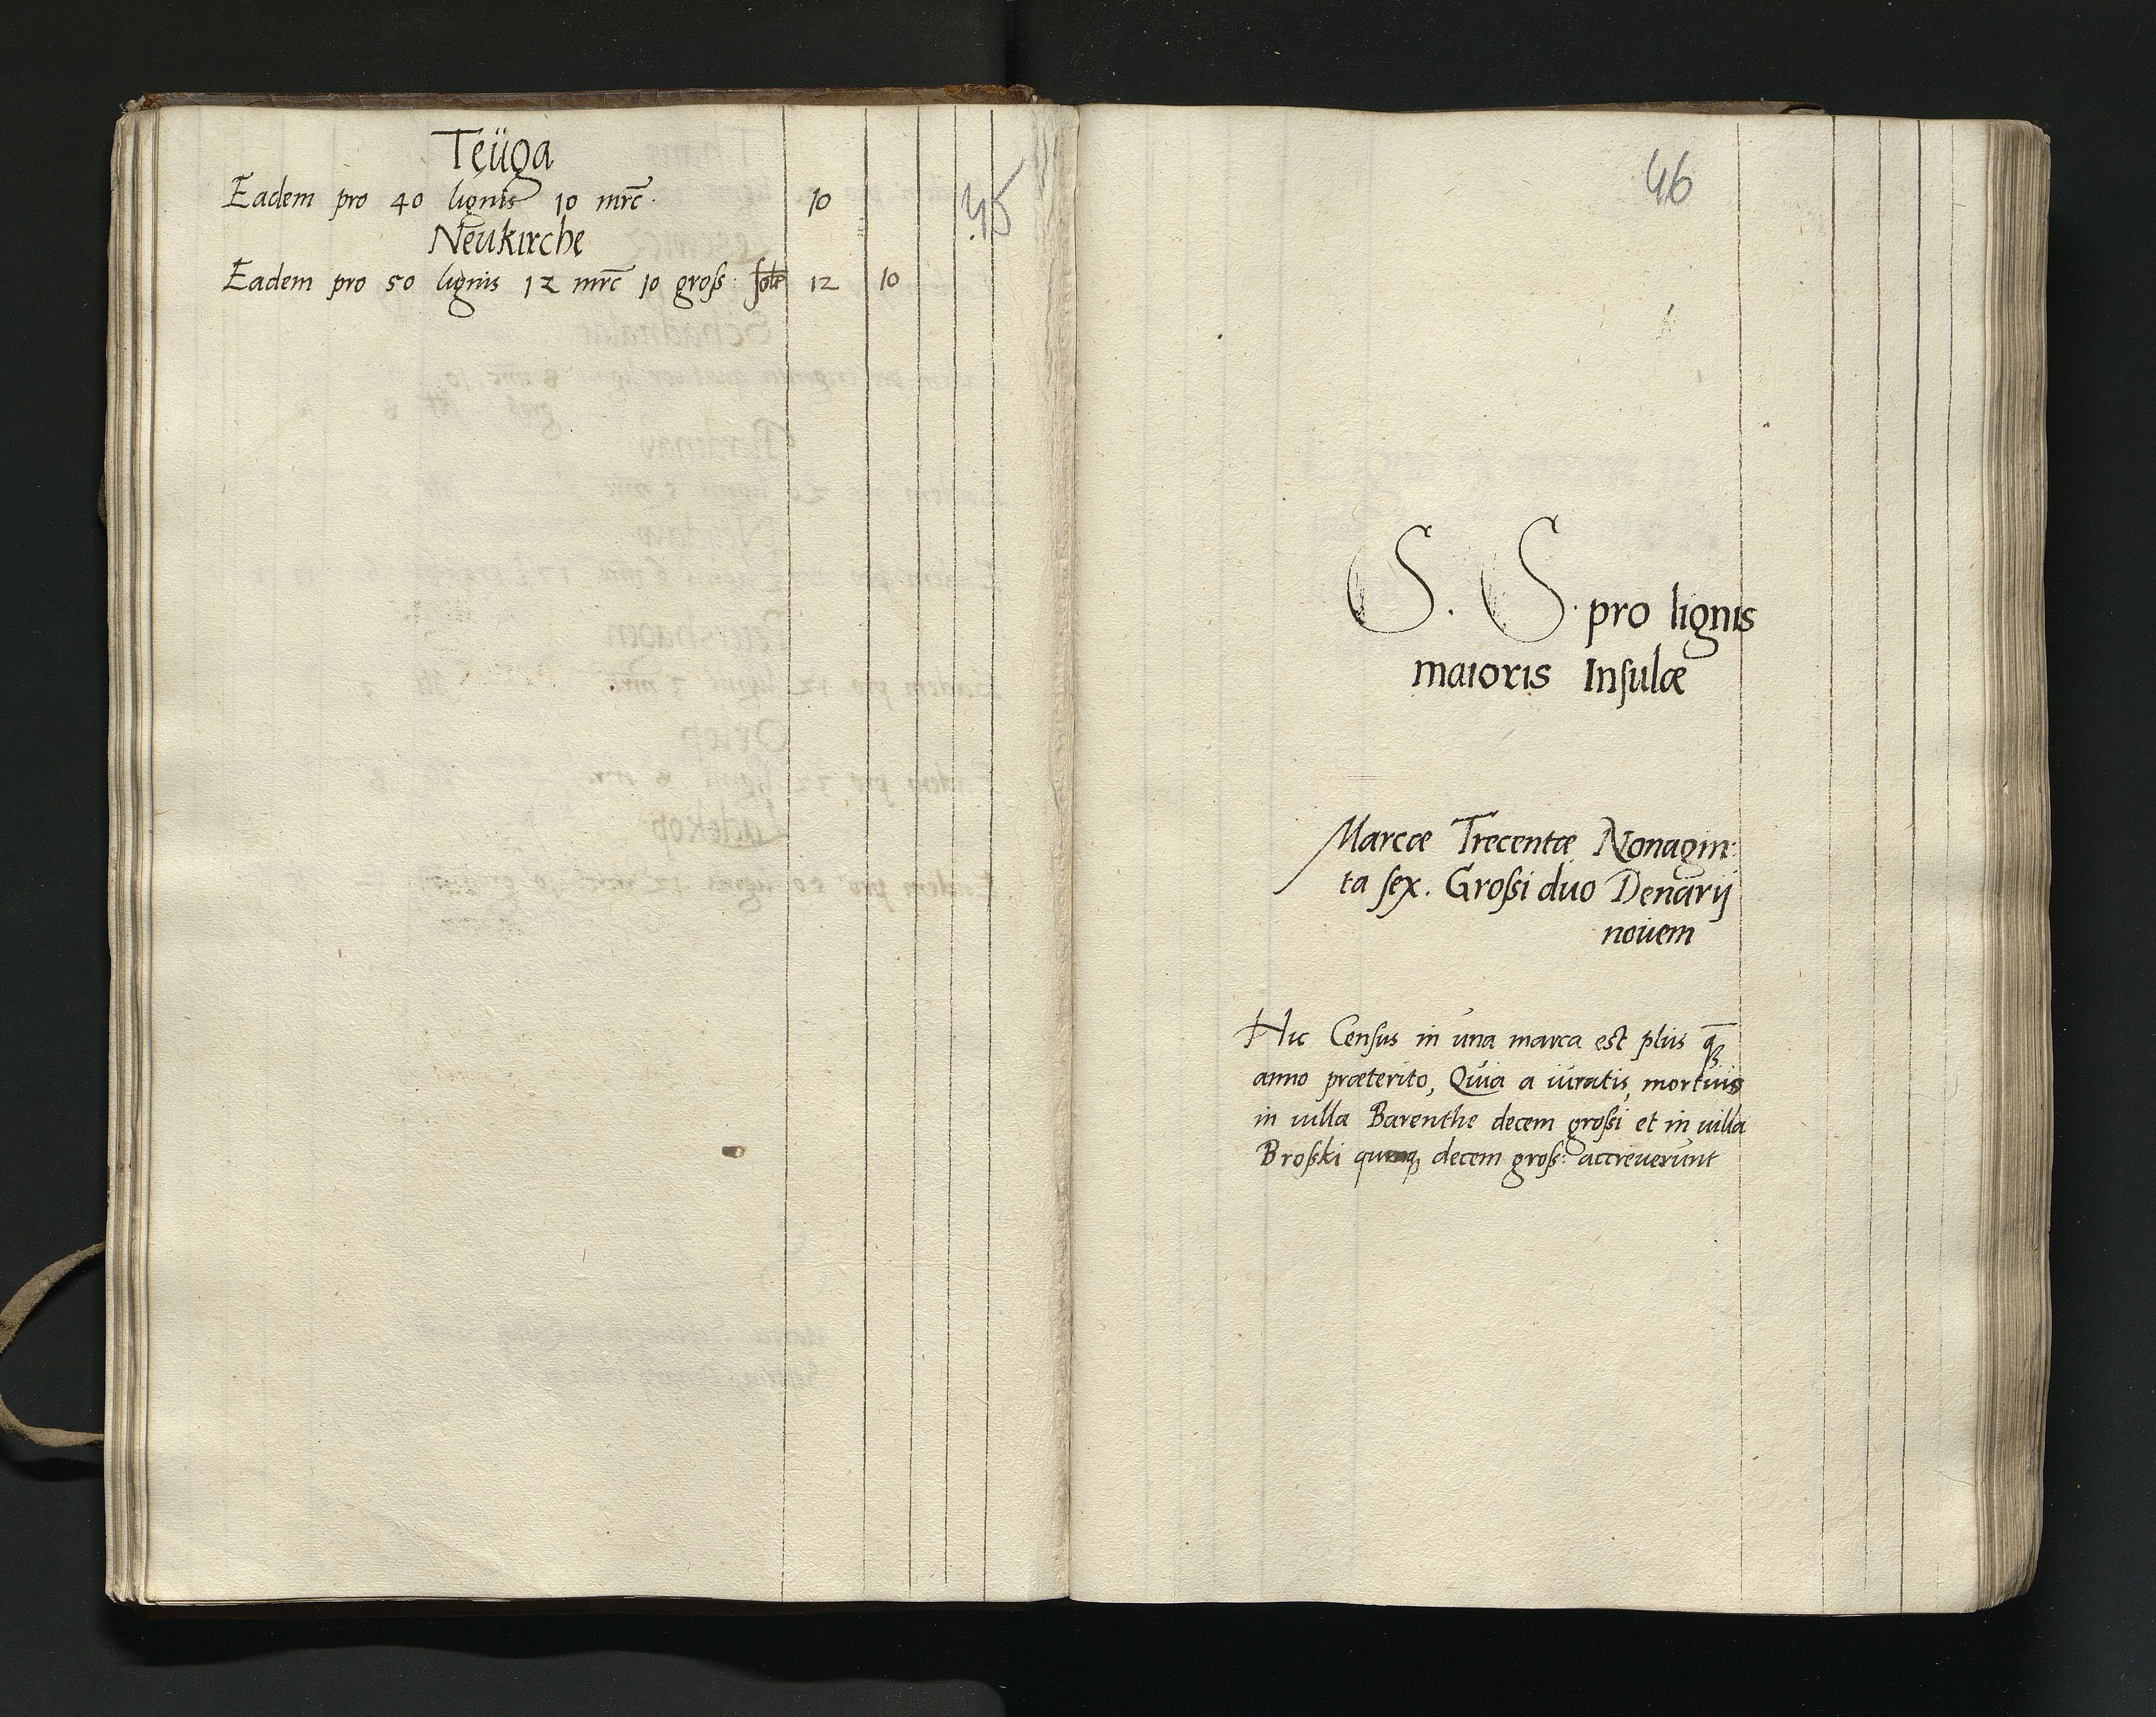 Teüga
Eadem pro 40 lignis 10 mrc̄. 10
Neukirche
Eadem pro 50 lignis 12 mrc̄ 10 groß: 12 10
45
46
S. S. pro lignis
maioris Insulæ
Marcæ Trecentæ Nonagin:
ta sex. Großi duo Denarij
nouem
Hic Census in una marca est plus
anno præterito, Quia a iuratis, mortuis
in uilla Barenthe decem großi et in uilla
Broßki decem groß: accreuerunt